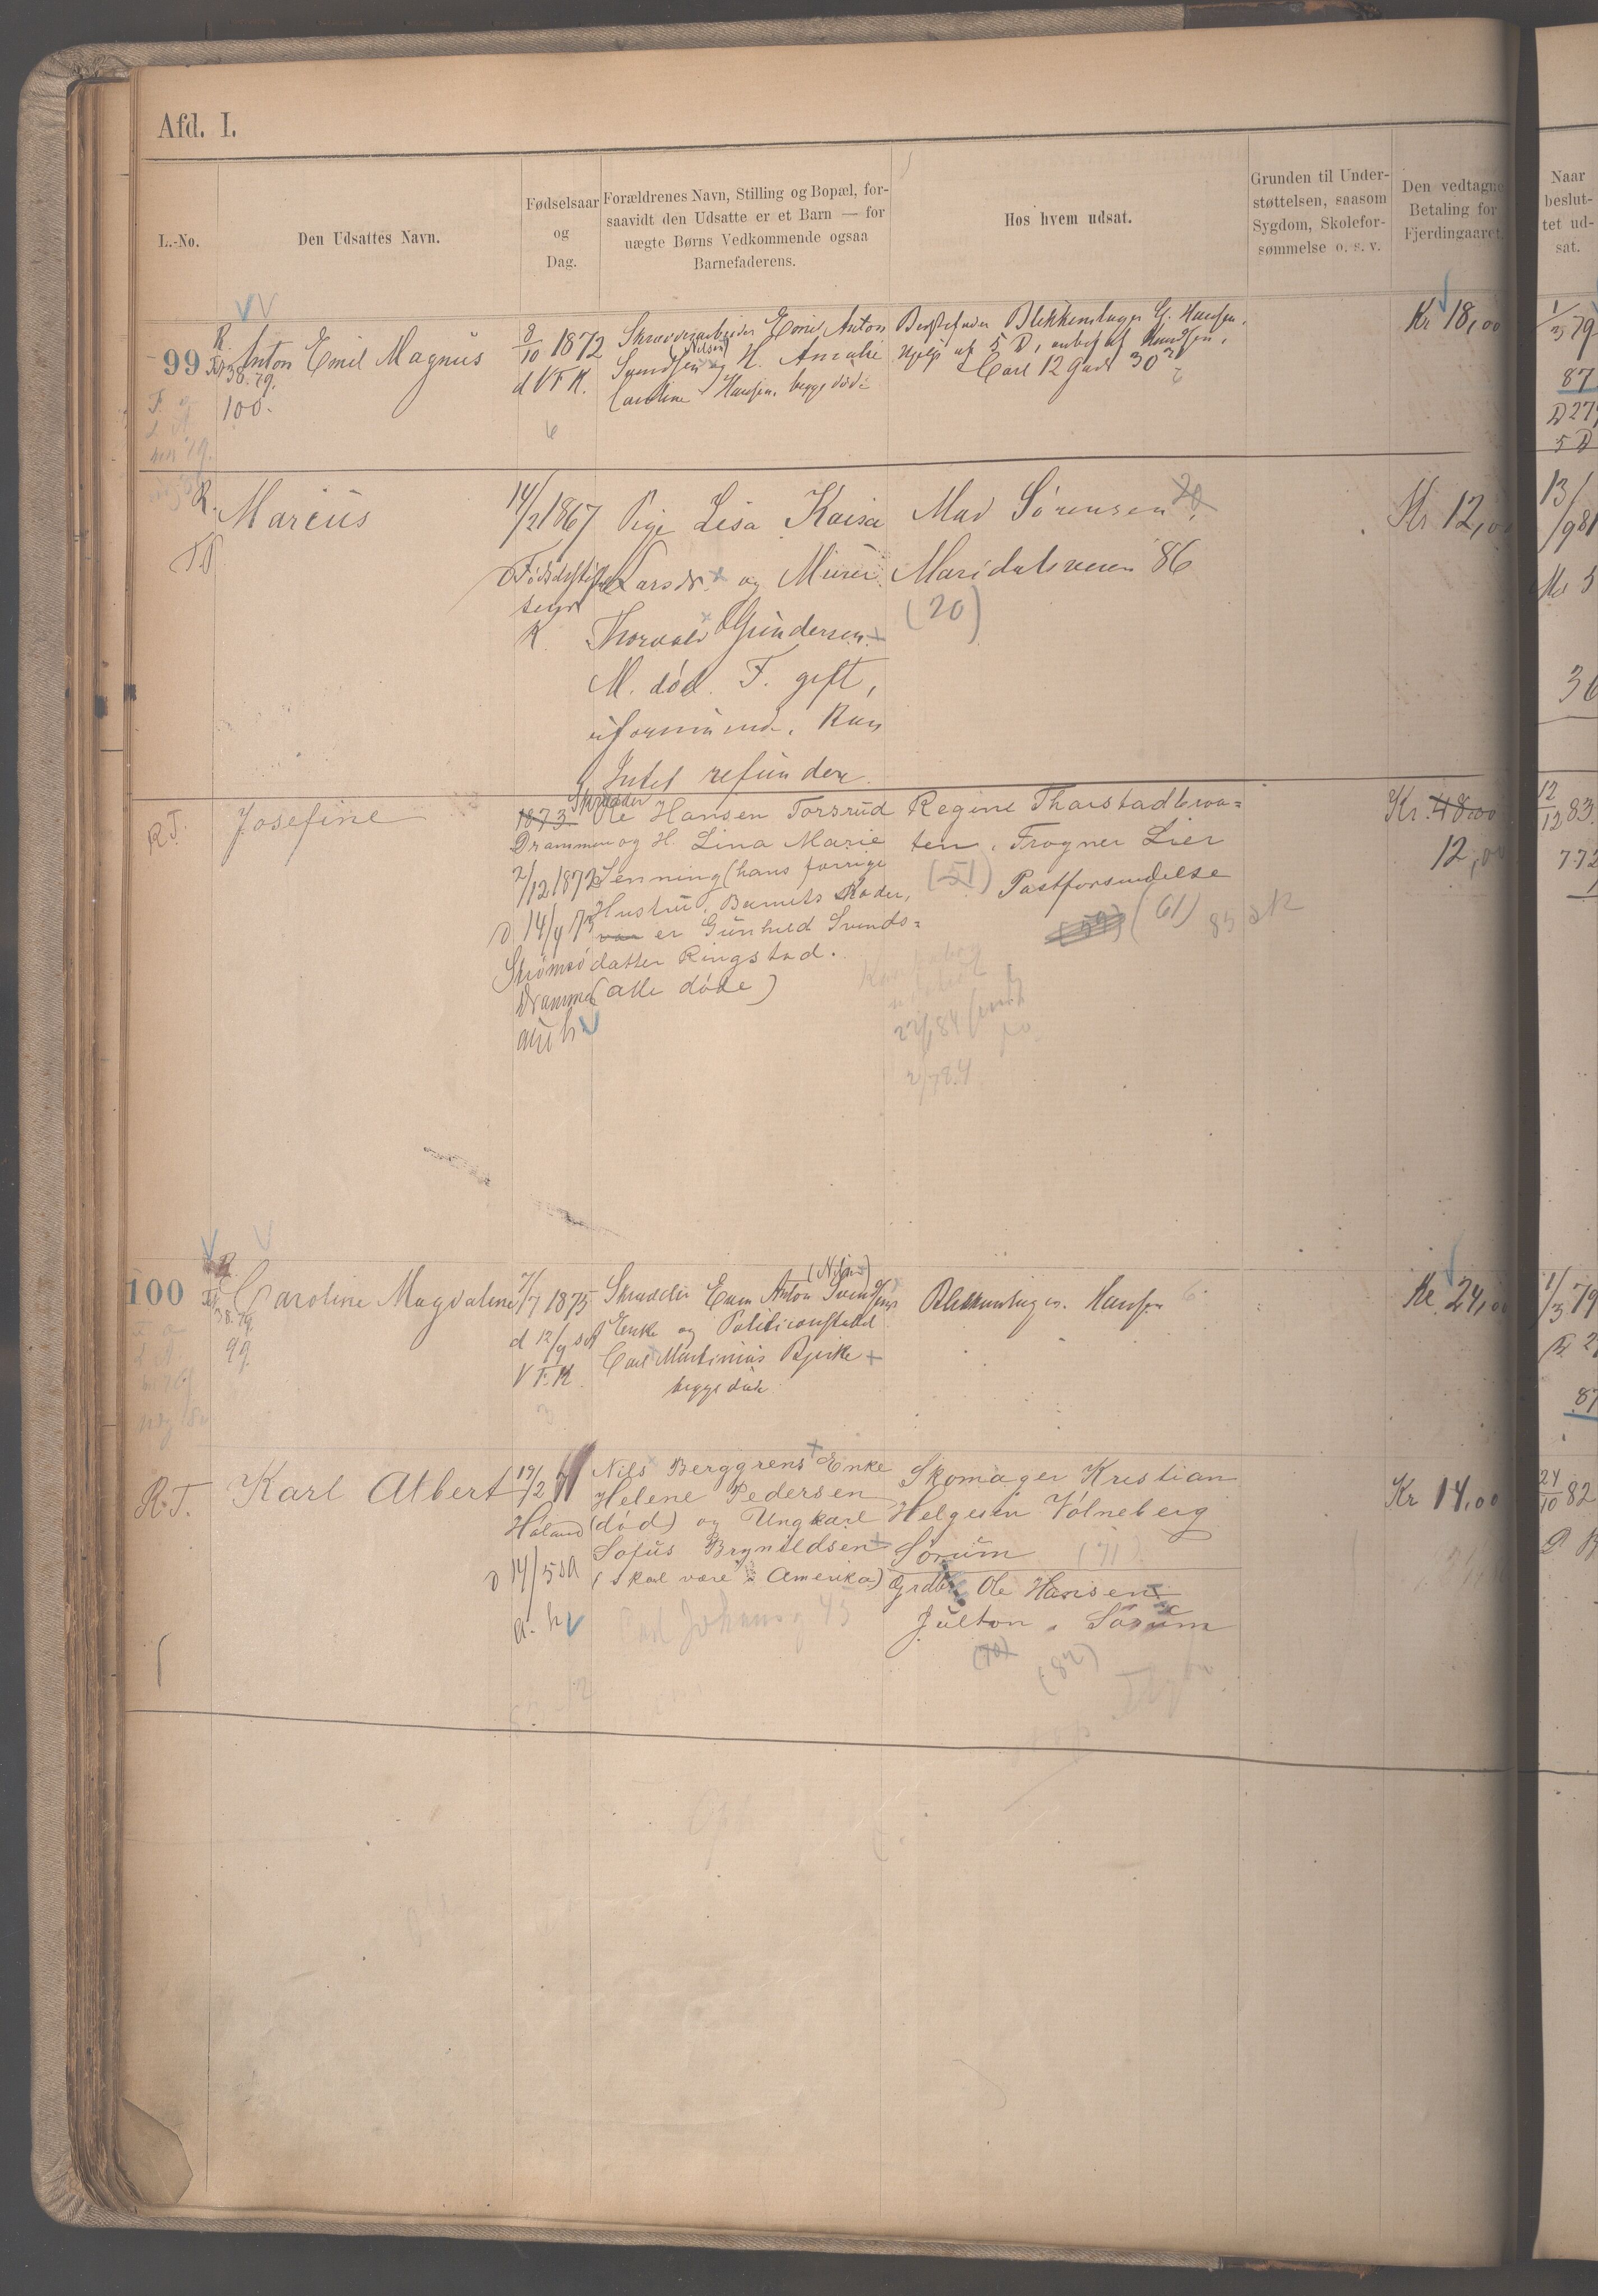 Afd. I.
L.-No.
Den Udsattes Navn.
Fødselsaar
og
Dag.
Forældrenes Navn, Stilling og Bopæl, for-
saavidt den Udsatte er et Barn — for
uægte Børns Vedkommende ogsaa
Barnefaderens.
Hos hvem udsat.
Grunden til Under-
støttelsen, saasom
Sygdom, Skolefor-
sømmelse o. s. v.
Den vedtagne
Betaling for
Fjerdingaaret.
Naar
beslut-
tet ud-
sat.
99
R
Anton Emil Magnus
38.79.
100.
8/10 1872
d V F K.
Skrædderarbeider Emil Anton
(Nilsen)
Svendsen og H. Amalie
Caroline Hansen, begge døde
Bedstefader Blikkenslager G. Hansen.
Hjelp af 5 D, anbef af Knudsen.
Carl 12 Gade 30
Kr 18,00
1/3 79
87
R.
Marcus
14/2 1867
Fødselsstift
K
Pige Lisa Kaisa
Larsdr. og Murer
Thorvald Gundersen
M. død. F. gift,
uformuend. Kan
Intet refundere.
Mad Sørensen 20
Maridalsveien 86
(20)
Kr 12,0
13/9 81
36
R.T.
Josefine
1873
Drammen
2/12 1873
D 14/9 73
Strømsø
Drammen
Skrædder
Ole Hansen Torsrud
og H. Lina Marie
Jenning (hans forrige
Hustru. Barnets Moder,
var er Gunhild Svends=
datter Ringstad.
(alle døde)
Regine Thorstadbraa=
ten, Frogner Lier
(51) Postforsendelse
(61)
Kr. 48.00
12,0
12/12 83.
772
100
R
Caroline Magdalene
38.79.
99.
7/7 1875
d 12/9 s A
V F. K.
(Nilsen)
Skrædder Emil Anton Svendsens
Enke og Politiconstabel
Carl Martinius Bjerke
begge døde
Blikkenslager. Hansen 6.
Kr. 24,0
1/3 79
87
R.T.
Karl Albert
19/2
Høland
D 14/5 s A
a. h.
Nils Berggrens Enke
Helene Pedersen
(død) og Ungkarl
Sofus Brynildsen
(skal være i Amerika)
Skomager Kristian
Helgesen Volneberg
Sørum (71)
Grdbr. Ole Hansen
Julton, Sørum
(70)
(82)
Kr 14,00
24/10 82